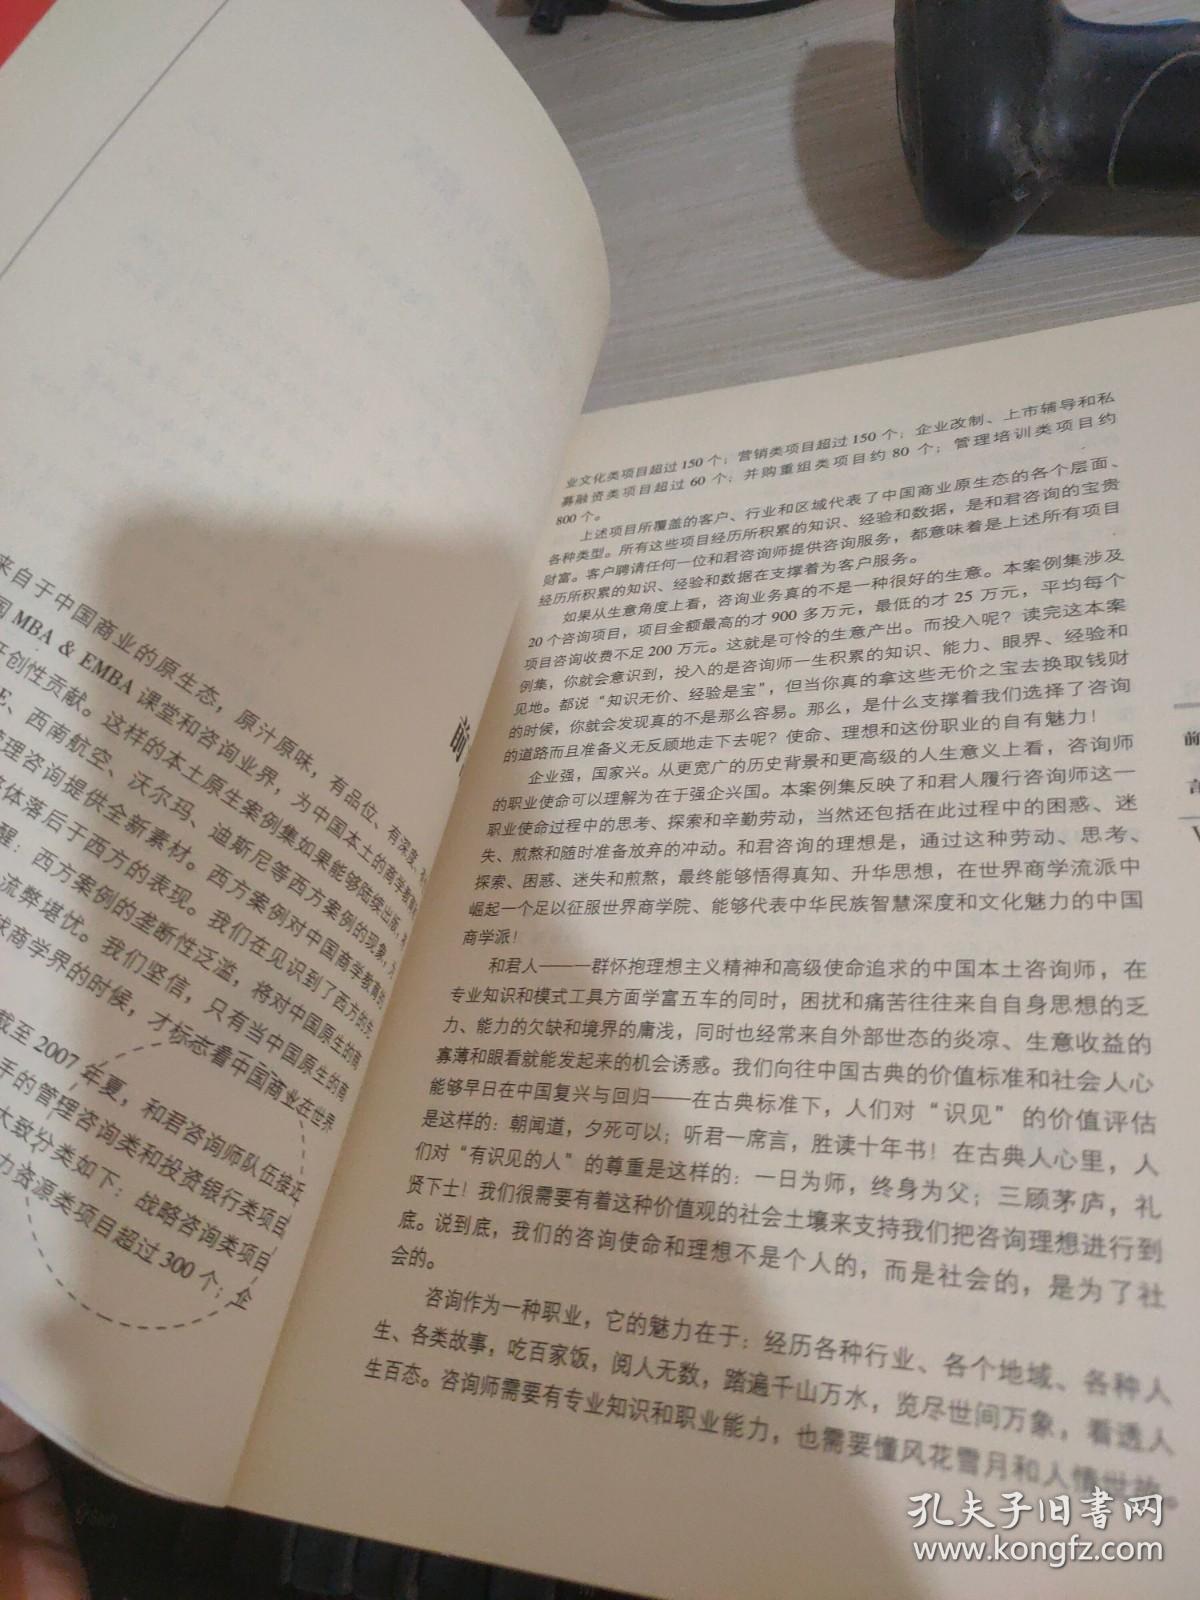 前
来自于中国商业的原生态，原汁原味，有品位、有深度、
MBA & EMBA 课堂和咨询业界，为中国本土的商学教育
开创性贡献。这样的本土原生案例集如果能够陆续出版，
E、西南航空、沃尔玛、迪斯尼等西方案例的现象，为
管理咨询提供全新素材。西方案例对中国商学教育的
体落后于西方的表现。我们在见识到了西方的先
醒：西方案例的垄断性泛滥，将对中国原生的商
流弊堪忧。我们坚信，只有当中国原生的商
球商学界的时候，才标志着中国商业在世界
截至 2007 年夏，和君咨询师队伍接近
手的管理咨询类和投资银行类项目
大致分类如下：战略咨询类项目
力资源类项目超过 300 个；企
业文化类项目超过 150 个；营销类项目超过 150 个；企业改制、上市辅导和私
募融资类项目超过 60 个；并购重组类项目约 80 个；管理培训类项目约
800 个。
上述项目所覆盖的客户、行业和区域代表了中国商业原生态的各个层面、
各种类型。所有这些项目经历所积累的知识、经验和数据，是和君咨询的宝贵
财富。客户聘请任何一位和君咨询师提供咨询服务，都意味着是上述所有项目
经历所积累的知识、经验和数据在支撑着为客户服务。
如果从生意角度上看，咨询业务真的不是一种很好的生意。本案例集涉及
20 个咨询项目，项目金额最高的才 900 多万元，最低的才 25 万元，平均每个
项目咨询收费不足 200 万元。这就是可怜的生意产出。而投入呢？读完这本案
例集，你就会意识到，投入的是咨询师一生积累的知识、能力、眼界、经验和
见地。都说“知识无价、经验是宝”，但当你真的拿这些无价之宝去换取钱财
的时候，你就会发现真的不是那么容易。那么，是什么支撑着我们选择了咨询
的道路而且准备义无反顾地走下去呢？使命、理想和这份职业的自有魅力！
企业强，国家兴。从更宽广的历史背景和更高级的人生意义上看，咨询师
的职业使命可以理解为在于强企兴国。本案例集反映了和君人履行咨询师这一
职业使命过程中的思考、探索和辛勤劳动，当然还包括在此过程中的困惑、迷
失、煎熬和随时准备放弃的冲动。和君咨询的理想是，通过这种劳动、思考、
探索、困惑、迷失和煎熬，最终能够悟得真知、升华思想，在世界商学流派中
崛起一个足以征服世界商学院、能够代表中华民族智慧深度和文化魅力的中国
商学派！
和君人——一群怀抱理想主义精神和高级使命追求的中国本土咨询师，在
专业知识和模式工具方面学富五车的同时，困扰和痛苦往往来自自身思想的乏
力、能力的欠缺和境界的庸浅，同时也经常来自外部世态的炎凉、生意收益的
寡薄和眼看就能发起来的机会诱惑。我们向往中国古典的价值标准和社会人心
能够早日在中国复兴与回归——在古典标准下，人们对“识见”的价值评估
是这样的：朝闻道，夕死可以；听君一席言，胜读十年书！在古典人心里，人
们对“有识见的人”的尊重是这样的：一日为师，终身为父；三顾茅庐，礼
贤下士！我们很需要有着这种价值观的社会土壤来支持我们把咨询理想进行到
底。说到底，我们的咨询使命和理想不是个人的，而是社会的，是为了社
会的。
咨询作为一种职业，它的魅力在于：经历各种行业、各个地域、各种人
生、各类故事，吃百家饭，阅人无数，踏遍千山万水，览尽世间万象，看透人
生百态。咨询师需要有专业知识和职业能力，也需要懂风花雪月和人情世故。
前
言
孔夫子旧书网
www.kongfz.com